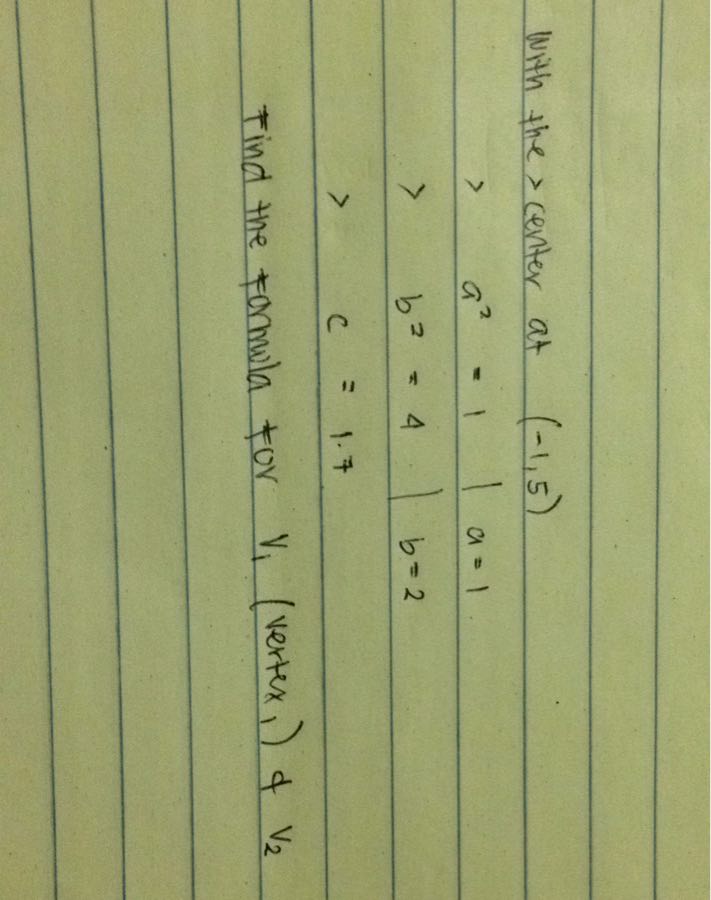 with the > center at (-1,5)
> a² = 1 | a = 1
> b² = 4 | b = 2
> c = 1.7
Find the formula for V₁ (vertex₁) & V₂